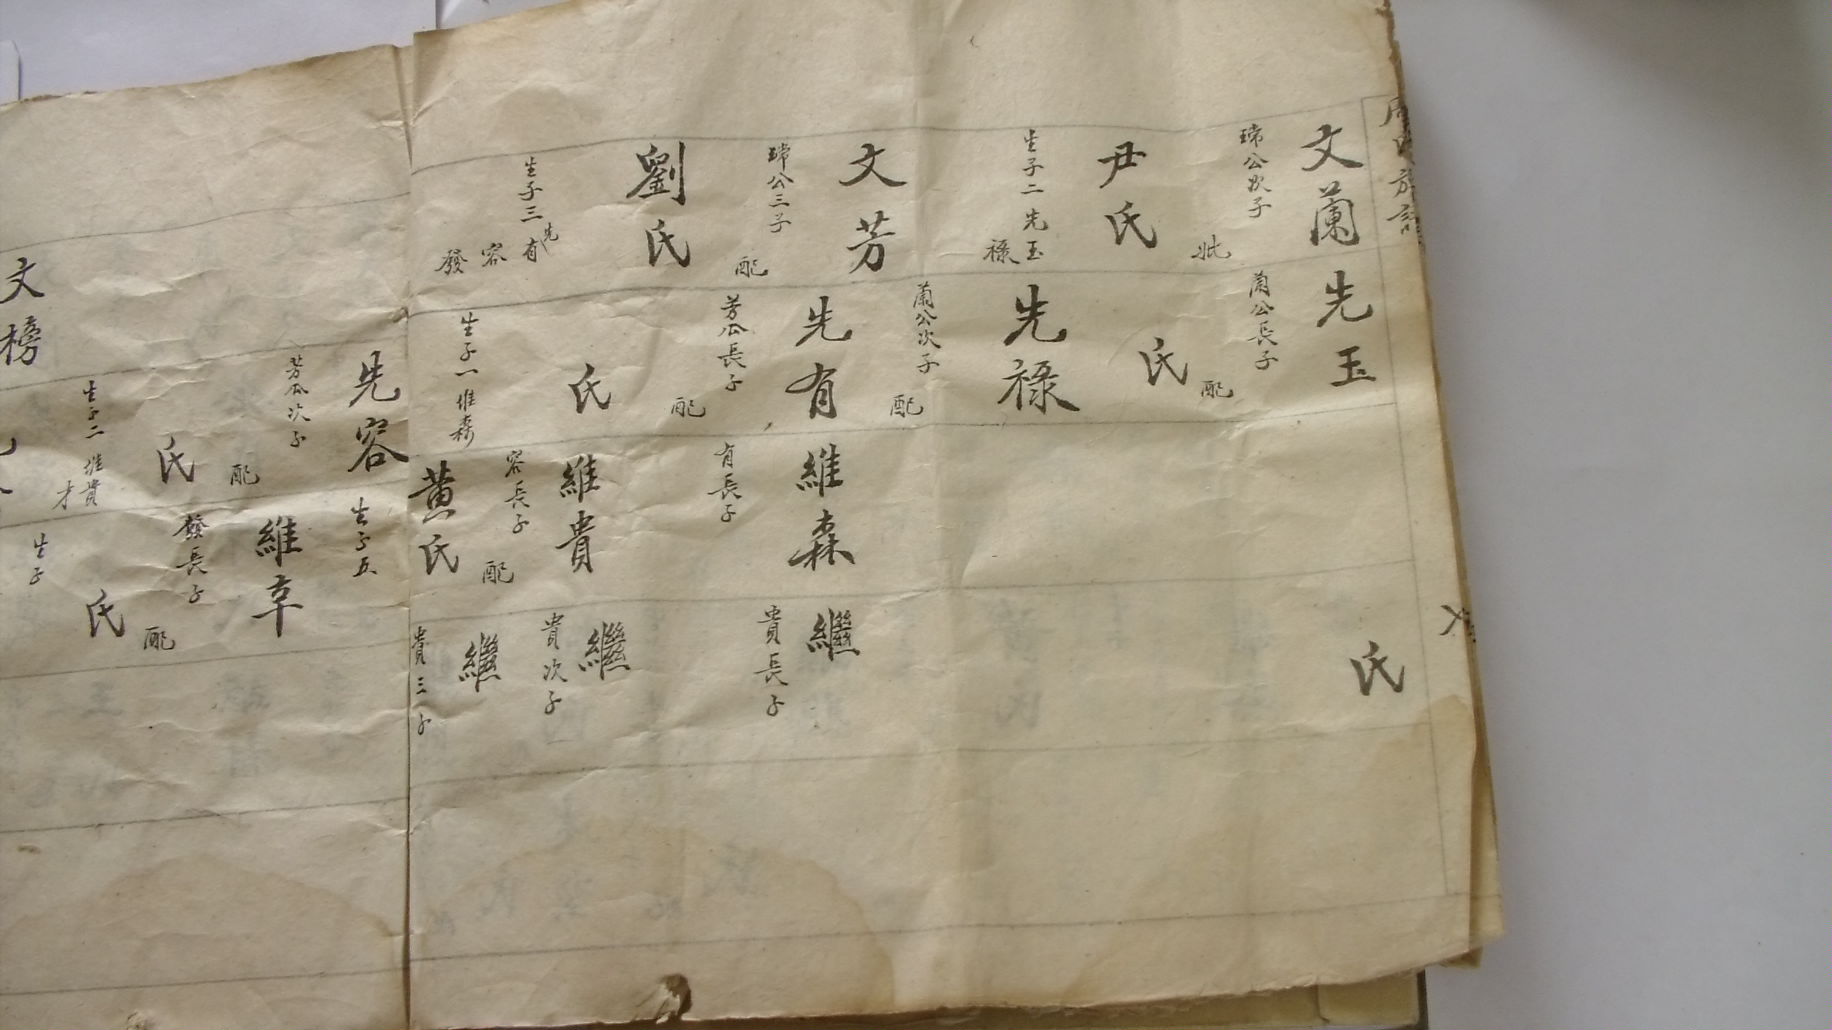 文蘭
瑞公次子
妣
尹氏
生子二 先玉
祿
文芳
瑞公三子
配
劉氏
生子三 先有
容
發
先玉
蘭公長子
配
氏
先祿
蘭公次子
配
先有
芳公長子
配
氏
生子一 維森
先容
芳公次子
配
氏
生子二 維貴
才
文榜
維森
有長子
維貴
容長子
配
黄氏
生子五
發長子
配
氏
生子
氏
繼
貴長子
繼
貴次子
繼
貴三子